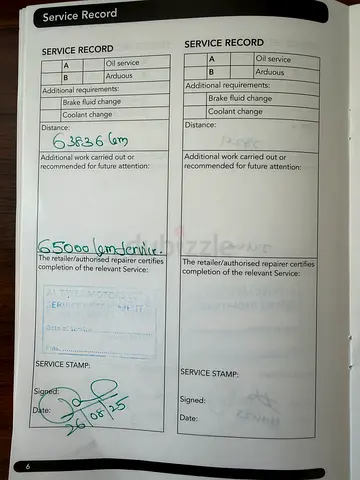 Service Record
SERVICE RECORD
A Oil service
B Arduous
Additional requirements:
Brake fluid change
Coolant change
Distance:
63836 km
Additional work carried out or
recommended for future attention:
65000 km service.
The retailer/authorised repairer certifies
completion of the relevant Service:
SERVICE STAMP:
Signed:
Date:
26/08/25
SERVICE RECORD
A Oil service
B Arduous
Additional requirements:
Brake fluid change
Coolant change
Distance:
Additional work carried out or
recommended for future attention:
The retailer/authorised repairer certifies
completion of the relevant Service:
SERVICE STAMP:
Signed:
Date:
dubizzle
6